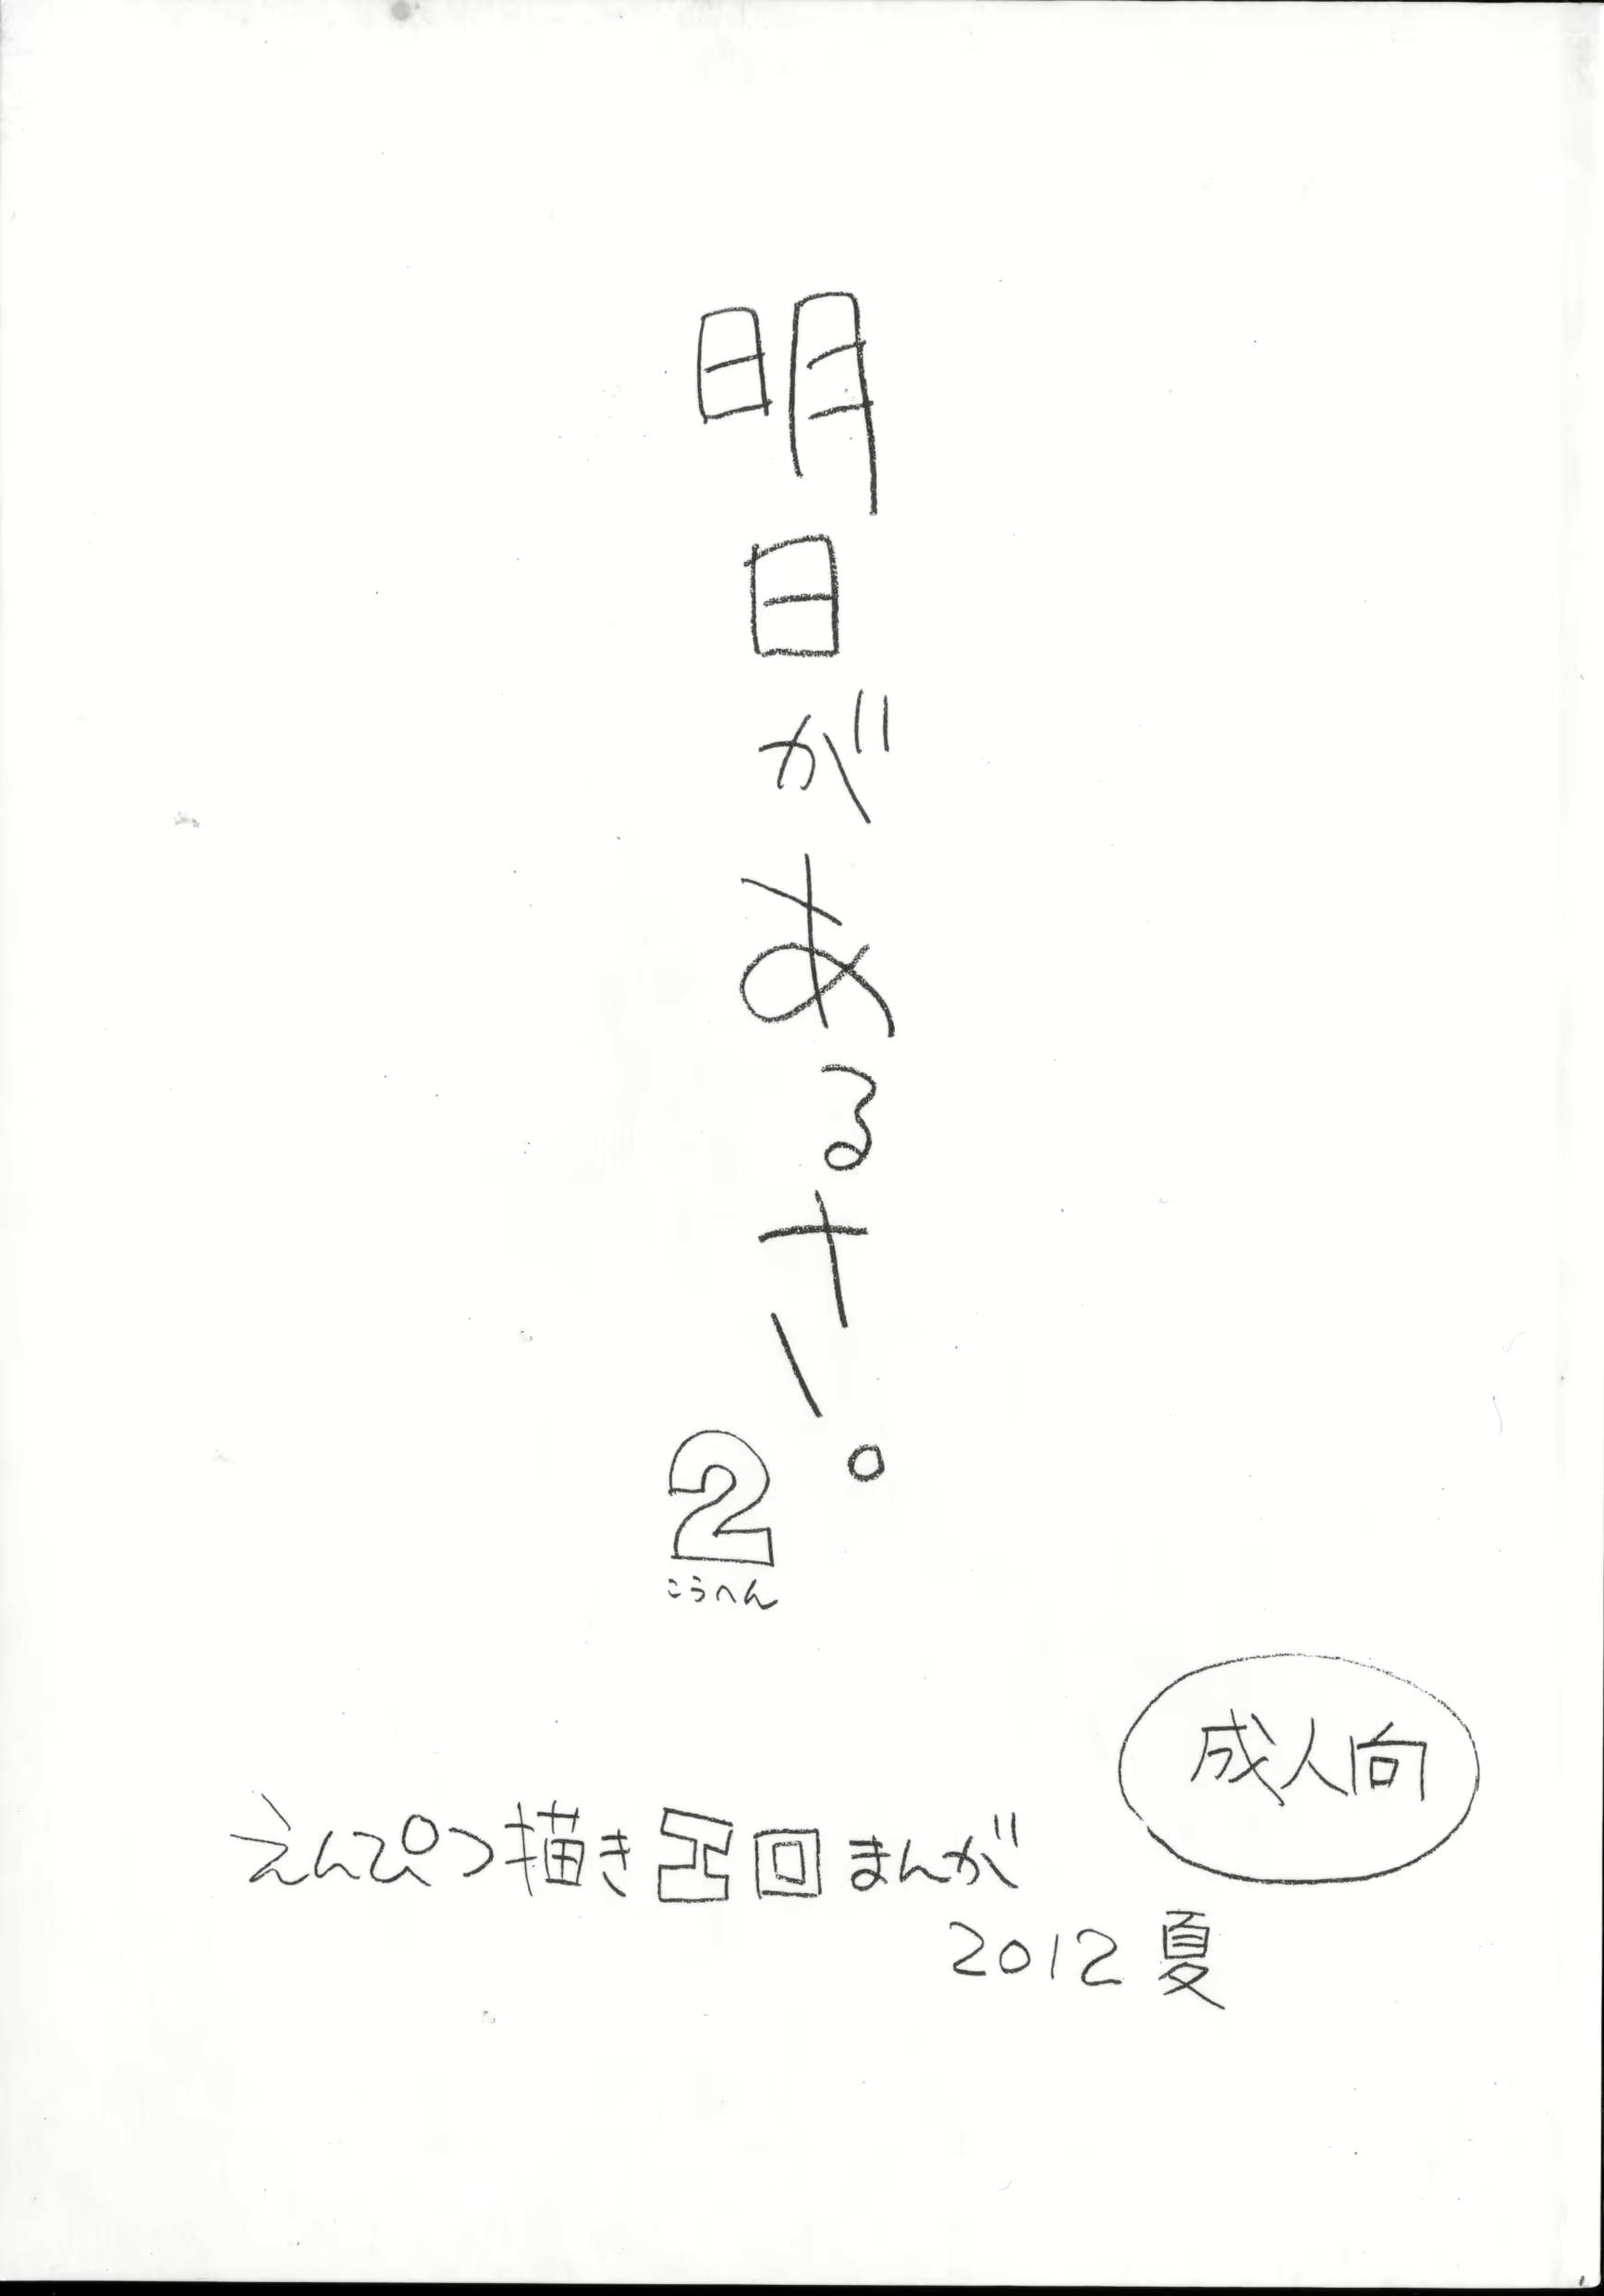 明日があるナー。
2
こうへん
成人向
えんぴつ描きエロまんが
2012夏